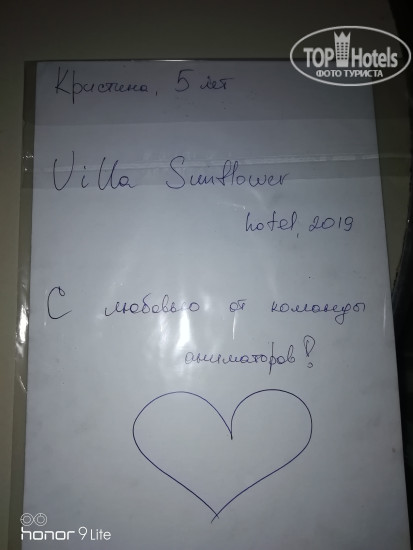 TOP Hotels
ФОТО ТУРИСТА
Кристина, 5 лет
Villa Sunflower
hotel, 2019
С любовью от команды
аниматоров!
honor 9 Lite